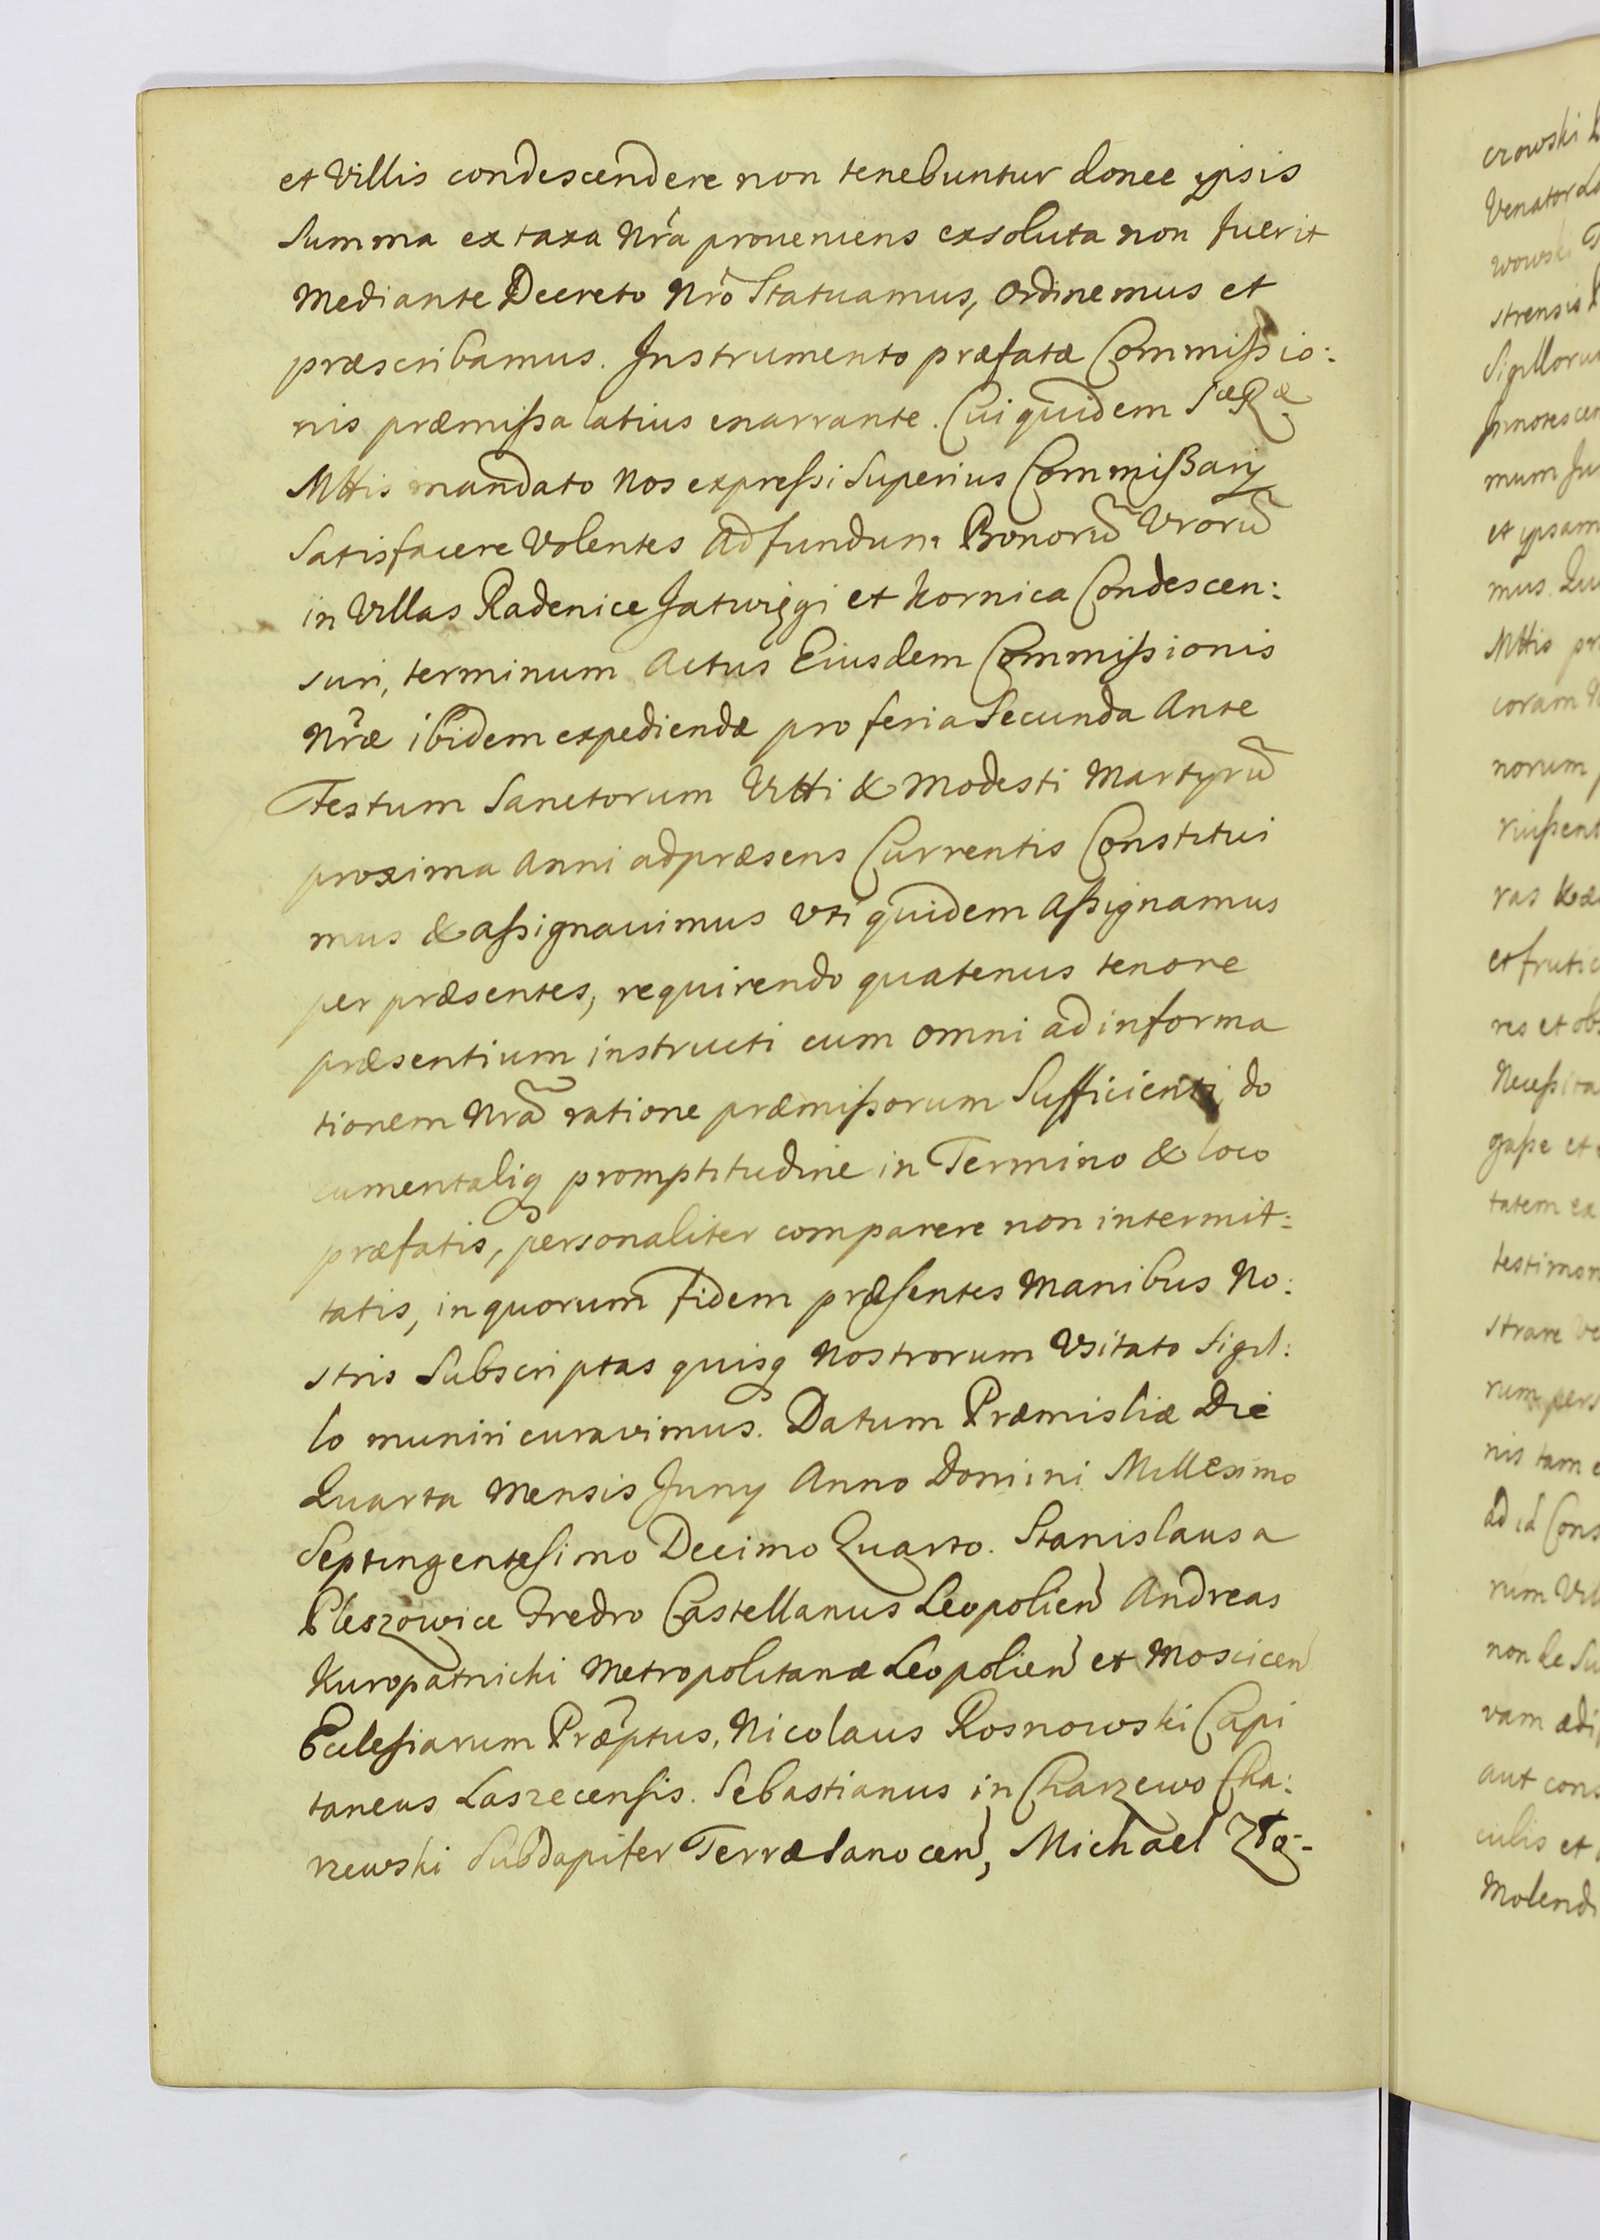 et Villis condescendere non tenebuntur donec ipsis
Summa ex taxa Nra proueniens exsoluta non fuerit
Mediante Decreto Nro Statuamus, Ordinemus et
præscribamus. Instrumento præfatæ Commißio:
nis præmißa latius enarrante. Cui quidem Sæ Ræ
Mttis mandato Nos expreßi Superius Commißarij
Satisfacere Volentes Ad fundum Bonorũ Vrorũ
in Villas Radenice Jatwięgi et Hornica Condescen:
suri, terminum Actus Eiusdem Commißionis
Nræ ibidem expediendæ pro feria Secunda Ante
Festum Sanctorum Vitti & Modesti Martyrũ
proxima Anni ad præsens Currentis Constitui
mus & aßignauimus Uti quidem Aßignamus
per præsentes, requirendo quatenus tenore
præsentium instructi cum omni ad informa
tionem Nrã ratione præmißorum Sufficienti do
cumentaliq promptitudine in Termino & loco
præfatis, personaliter comparere non intermit:
tatis, in quorum fidem præsentes Manibus No:
stris Subscriptas quisq Nostrorum Usitato Sigil:
lo muniri curavimus. Datum Præmisliæ Die
Quarta Mensis Juny Anno Domini Millesimo
Septingentesimo Decimo Quarto. Stanislaus a
Pleszowice Fredro Castellanus Leopolien Andreas
Kuropatnicki Metropolitanæ Leopolien et Moscicen
Eclesiarum Præptus, Nicolaus Rosnowski Capi
taneus Laszecensis. Sebastianus in Charzewo Cha:
rzewski Subdapifer Terræ Sanocen, Michael
crowski
Venator
wowski
strensis
Sigilloru
Innotescen
mum Ju
et ipsam
mus.
Mttis pr
coram
norum
rißent
ras
et frutic
res et obs
Neceßita
gaße et
tatem ex
testimon
strare Ve
rum pers
nis tam
ad id Cons
rum Vil
non
vam ædi
aut cons
culis et
Molend